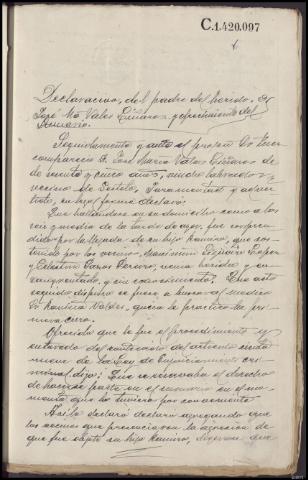 C.1.420.097
Declaracion, del padre del herido. D.
José Mª Vales Giliaro y ofrecimiento del
Sumario.
Seguidamente y ante el propio Sr. Juez
comparecio D. Jose Maria Vales Giliaro de
sesenta y cinco años, viudo labrador y
vecino de Juramentado y adver
tido, en legal forma declaró:
Que hallandose en su domicilio como a las
seis y media de la tarde de ayer, fue sorpren
dido por la llegada de su hijo Ramiro, que sos
tenido por los vecinos, Maximino Lopez
y Celestino venia herido y en
sangrentado, y sin conocimiento. Que acto
seguido dispuso se fuese a buscar al medico
D. Valdes, quien le practicó la pri
mera cura.
Ofrecido que le fue el procedimiento y
enterado del contenido del articulo ciento
nueve de la Ley de Enjuiciamiento cri
minal dijo: Que se reservaba el derecho
de hacerse parte en el sumario en el mo
mento que lo tuviere por conveniente
Asi lo declaró declara agregando que
los vecinos que presenciaron la agresion de
que fue objeto su hijo Ramiro, dijeron que